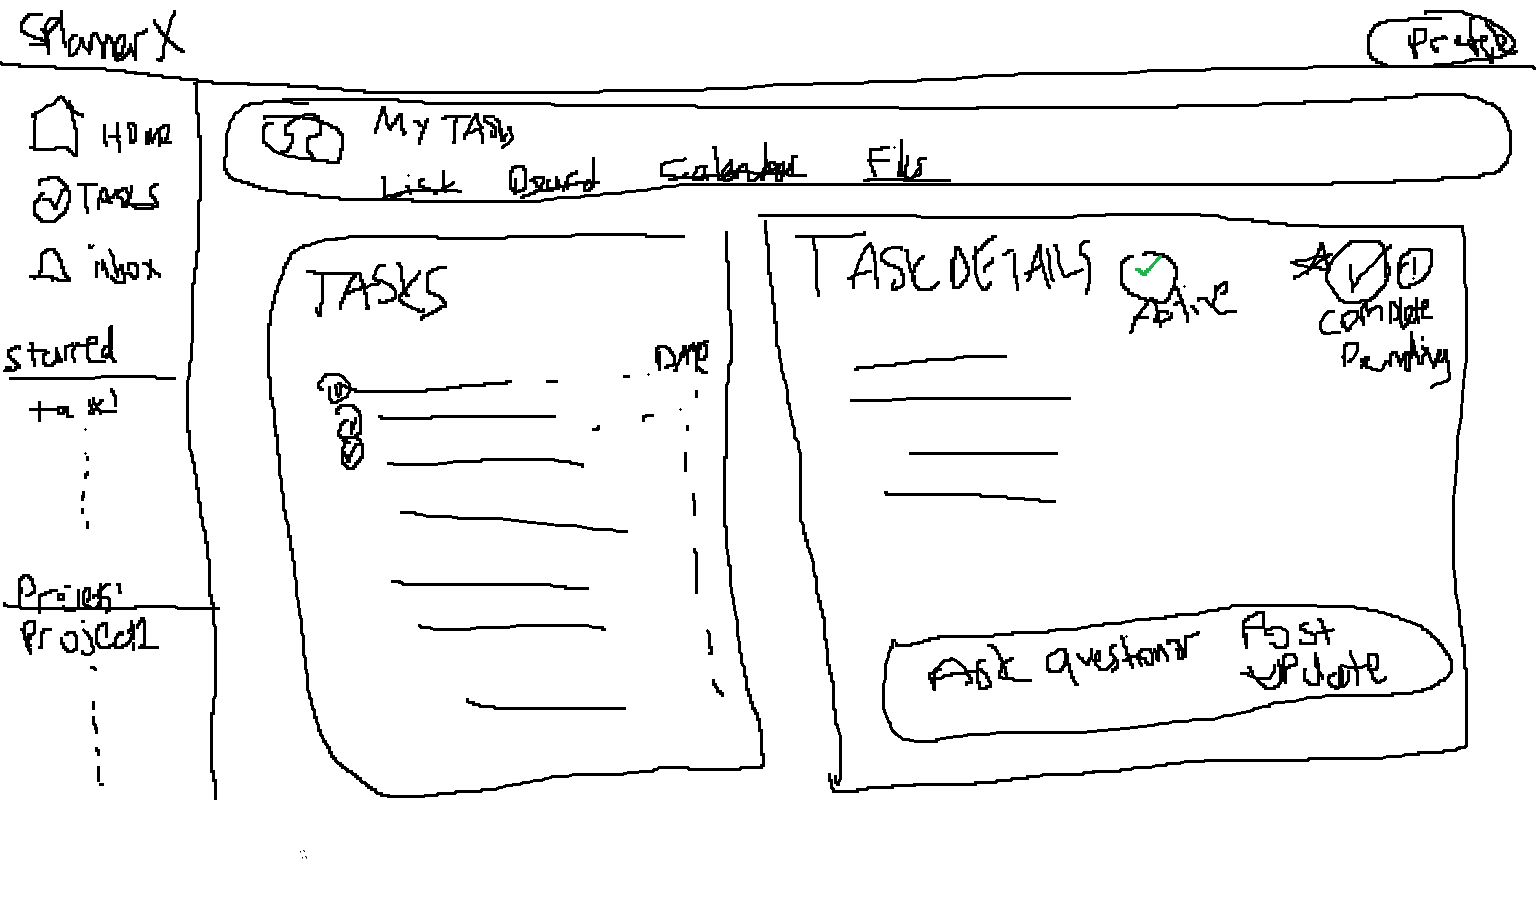 SPlannerX
Profile
HOME
TASKS
inbox
Starred
task1
Project1
My TASks
List Board Calendar Files
TASKS
DATE
TASK DETAILS
Active
complete
Ask Questions Post
update